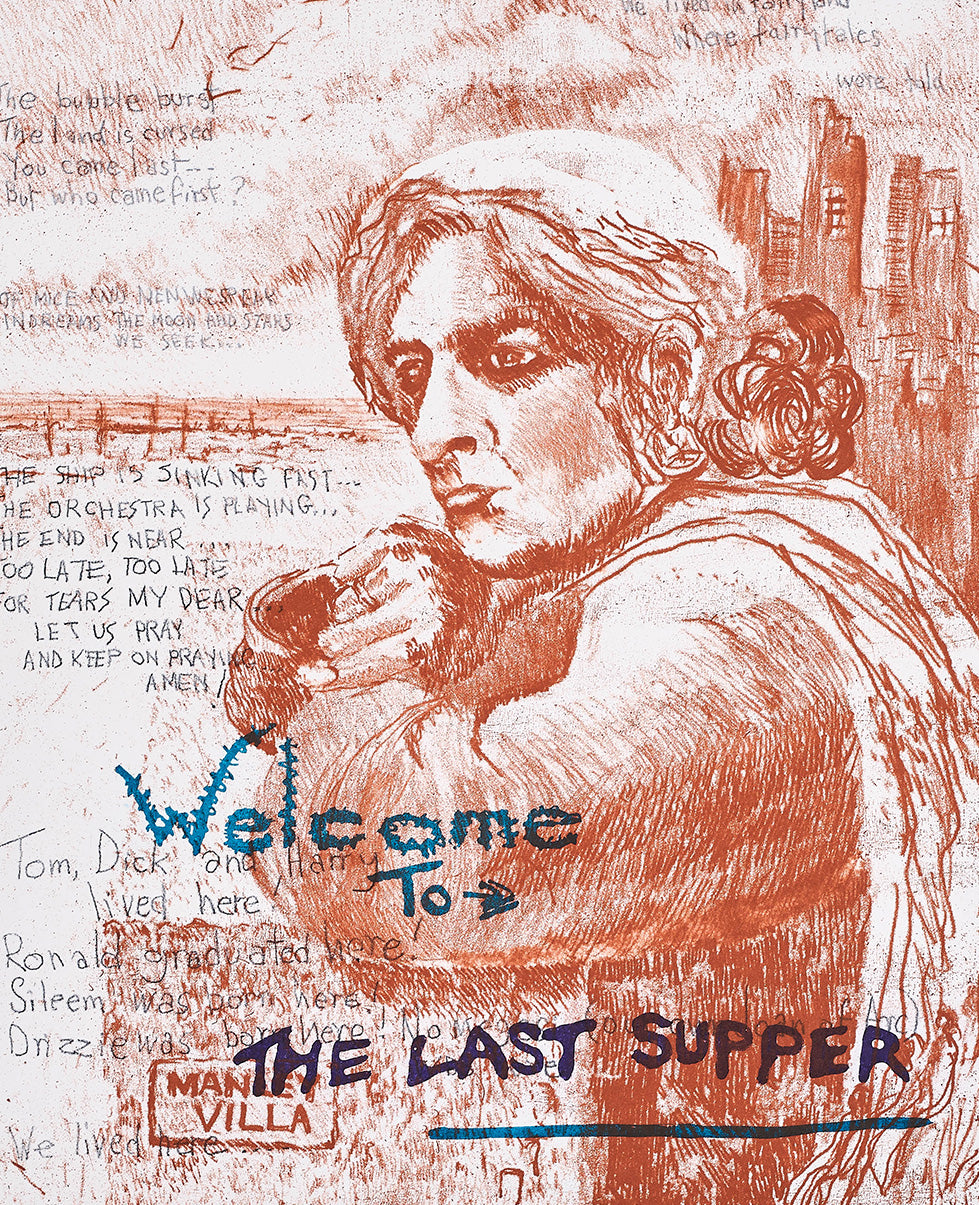 We lived in fairyland
where fairytales
were told
The bubble burst
The land is cursed
You came last---
But who came first?
OF MICE AND MEN WE SPEAK
THE MOON AND STARS
WE SEEK...
THE SHIP IS SINKING FAST---
HE ORCHESTRA IS PLAYING...
HE END IS NEAR ...
OO LATE, TOO LATE
FOR TEARS MY DEAR...
LET US PRAY
AND KEEP ON PRAYING
AMEN!
Welcome
To
Tom, Dick and Harry
lived here
Ronald graduated here!
Sileem was born here!
Drizzle was born here!
THE LAST SUPPER
MANLEY
VILLA
We lived here...